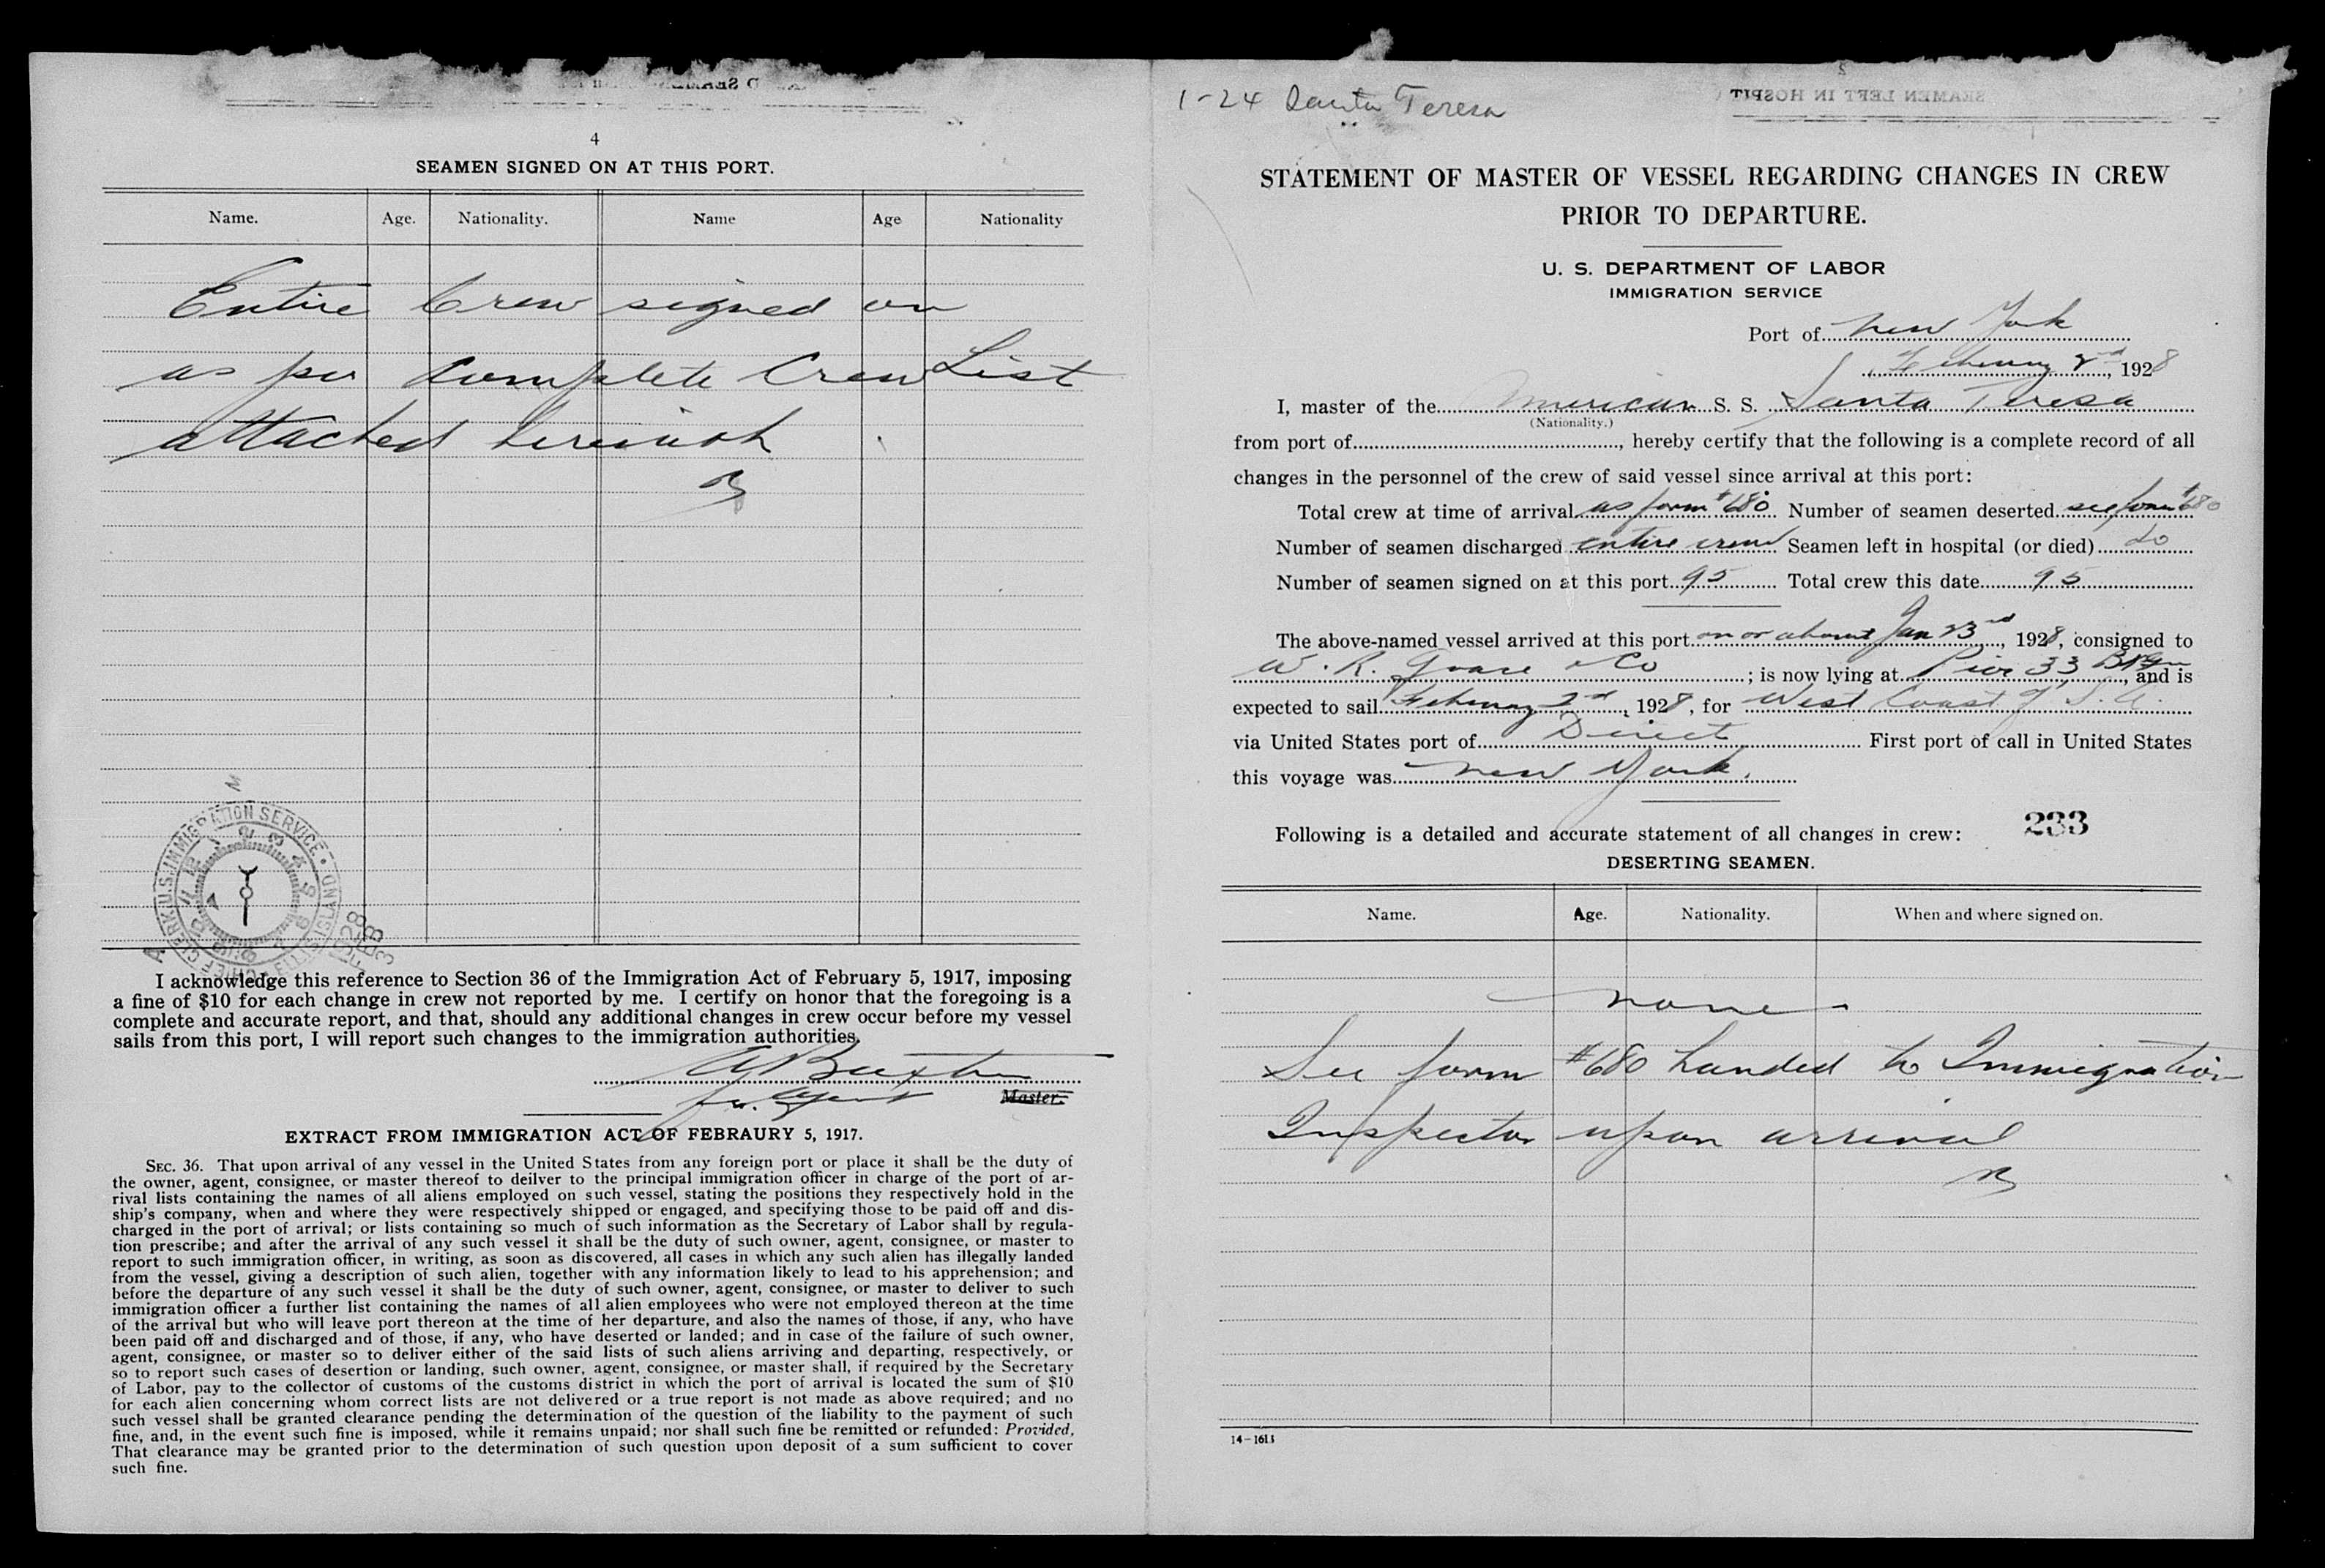 4
SEAMEN SIGNED ON AT THIS PORT.
Name. Age. Nationality. Name Age Nationality
Entire Crew signed on
as per Complete Crew List
attached herewith
B
U.S. IMMIGRATION SERVICE • ELLIS ISLAND
1928
FEB 3
I acknowledge this reference to Section 36 of the Immigration Act of February 5, 1917, imposing
a fine of $10 for each change in crew not reported by me. I certify on honor that the foregoing is a
complete and accurate report, and that, should any additional changes in crew occur before my vessel
sails from this port, I will report such changes to the immigration authorities.
for Agent Master.
EXTRACT FROM IMMIGRATION ACT OF FEBRAURY 5, 1917.
SEC. 36. That upon arrival of any vessel in the United States from any foreign port or place it shall be the duty of
the owner, agent, consignee, or master thereof to deilver to the principal immigration officer in charge of the port of ar-
rival lists containing the names of all aliens employed on such vessel, stating the positions they respectively hold in the
ship's company, when and where they were respectively shipped or engaged, and specifying those to be paid off and dis-
charged in the port of arrival; or lists containing so much of such information as the Secretary of Labor shall by regula-
tion prescribe; and after the arrival of any such vessel it shall be the duty of such owner, agent, consignee, or master to
report to such immigration officer, in writing, as soon as discovered, all cases in which any such alien has illegally landed
from the vessel, giving a description of such alien, together with any information likely to lead to his apprehension; and
before the departure of any such vessel it shall be the duty of such owner, agent, consignee, or master to deliver to such
immigration officer a further list containing the names of all alien employees who were not employed thereon at the time
of the arrival but who will leave port thereon at the time of her departure, and also the names of those, if any, who have
been paid off and discharged and of those, if any, who have deserted or landed; and in case of the failure of such owner,
agent, consignee, or master so to deliver either of the said lists of such aliens arriving and departing, respectively, or
so to report such cases of desertion or landing, such owner, agent, consignee, or master shall, if required by the Secretary
of Labor, pay to the collector of customs of the customs district in which the port of arrival is located the sum of $10
for each alien concerning whom correct lists are not delivered or a true report is not made as above required; and no
such vessel shall be granted clearance pending the determination of the question of the liability to the payment of such
fine, and, in the event such fine is imposed, while it remains unpaid; nor shall such fine be remitted or refunded: Provided,
That clearance may be granted prior to the determination of such question upon deposit of a sum sufficient to cover
such fine.
1-24 Santa Teresa
SEAMEN LEFT IN HOSPIT
STATEMENT OF MASTER OF VESSEL REGARDING CHANGES IN CREW
PRIOR TO DEPARTURE.
U. S. DEPARTMENT OF LABOR
IMMIGRATION SERVICE
Port of New York
February 2nd, 1928
I, master of the American S. S. Santa Teresa
(Nationality.)
from port of, hereby certify that the following is a complete record of all
changes in the personnel of the crew of said vessel since arrival at this port:
Total crew at time of arrival as form #680 Number of seamen deserted see form #680
Number of seamen discharged entire crew Seamen left in hospital (or died) do
Number of seamen signed on at this port 95 Total crew this date 95
The above-named vessel arrived at this port on or about Jan 23rd, 1928, consigned to
W. R. Grace & Co; is now lying at Pier 33 Bklyn, and is
expected to sail February 2nd, 1928, for West Coast of S. A.
via United States port of Direct First port of call in United States
this voyage was New York.
Following is a detailed and accurate statement of all changes in crew: 233
DESERTING SEAMEN.
Name. Age. Nationality. When and where signed on.
none
See form #680 handed to Immigration
Inspector upon arrival
B
14-1613